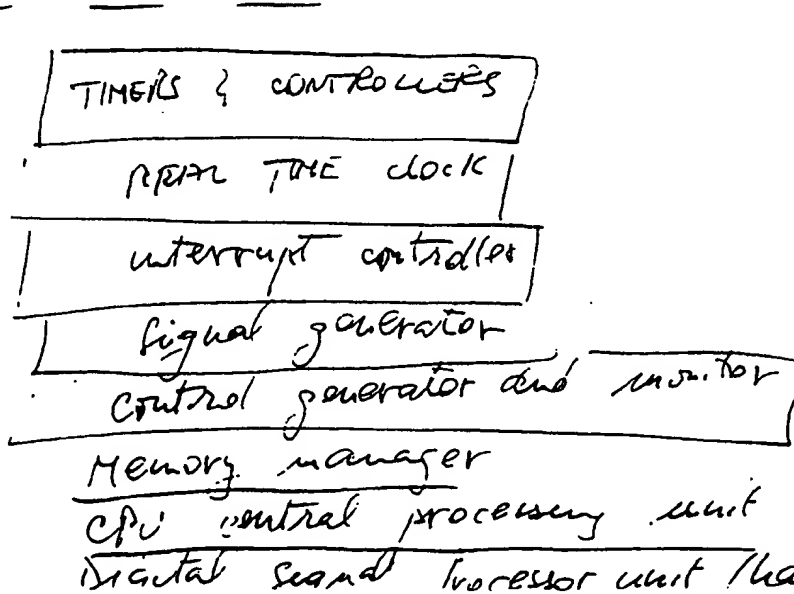 TIMERS & CONTROLLERS
REAL TIME clock
interrupt controller
Signal generator
Control generator and monitor
Memory manager
CPU central processing unit
Digital Signal Processor unit